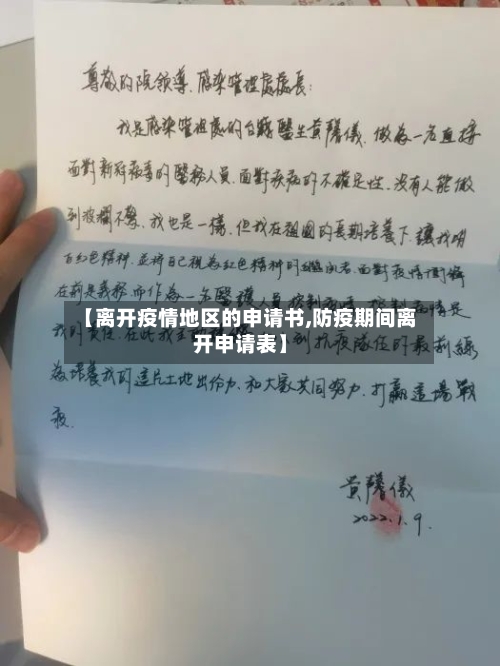 尊敬的院领導、感染管理處處長：
我是感染管理處的台籍醫生黃馨儀，做為一名直接
面對新冠病毒的醫務人員，面對疾病的不確定性，没有人能做
到波瀾不驚，我也是一樣，但我在祖國的長期培養下讓我明
白紅色精神，並將自己視為紅色精神的追随者，面對疫情
在前是義務，而作為一名醫護人員
我的責任，在此我 到抗疫隊伍的最前線
為培養我的這片土地出份力，和大家共同努力，打贏這場戰
疫.
【离开疫情地区的申请书,防疫期间离
开申请表】
黃馨儀
2022.1.9.